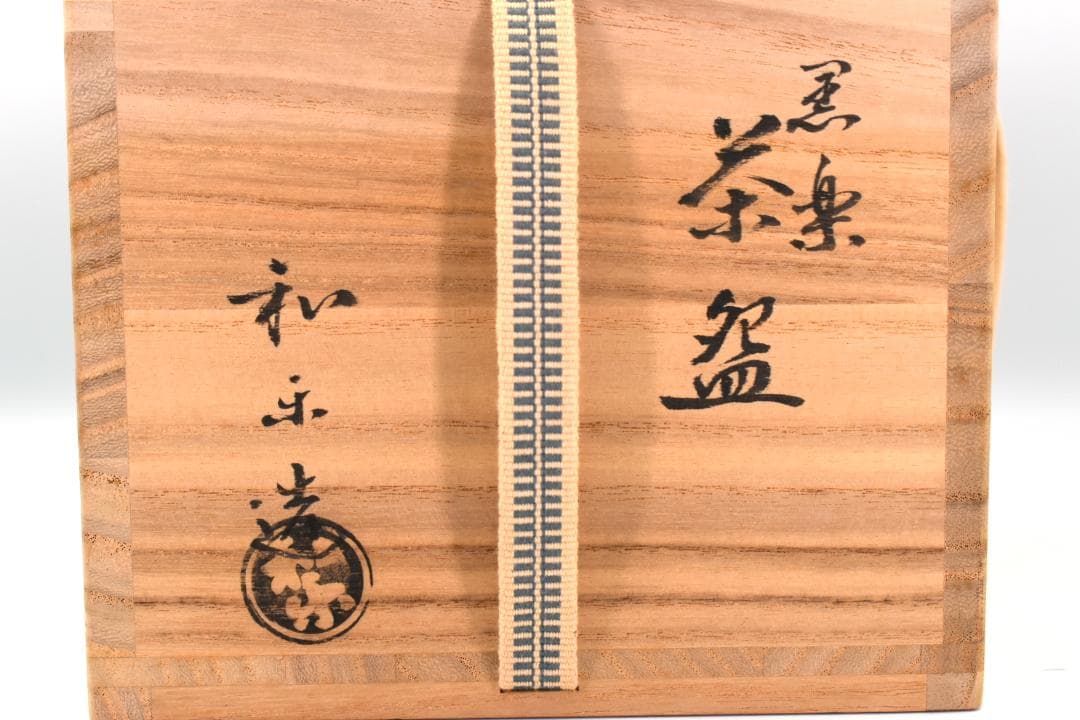 黒楽
茶盌
和楽造